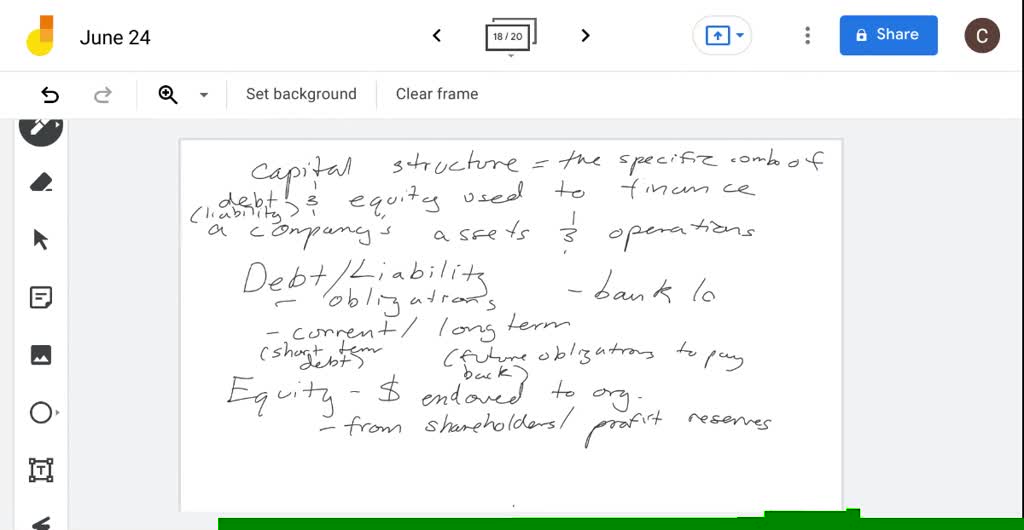 June 24
18 / 20
Share
C
Set background
Clear frame
capital structure = the specific combo of
debt & equity used to finance
(liability)
a company's assets & operations
Debt/Liability
- obligations
- bank lo
- current/ long term
(short term debt)
(future obligations to pay back)
Equity - $ endoved to org.
- from shareholders/ profit reserves